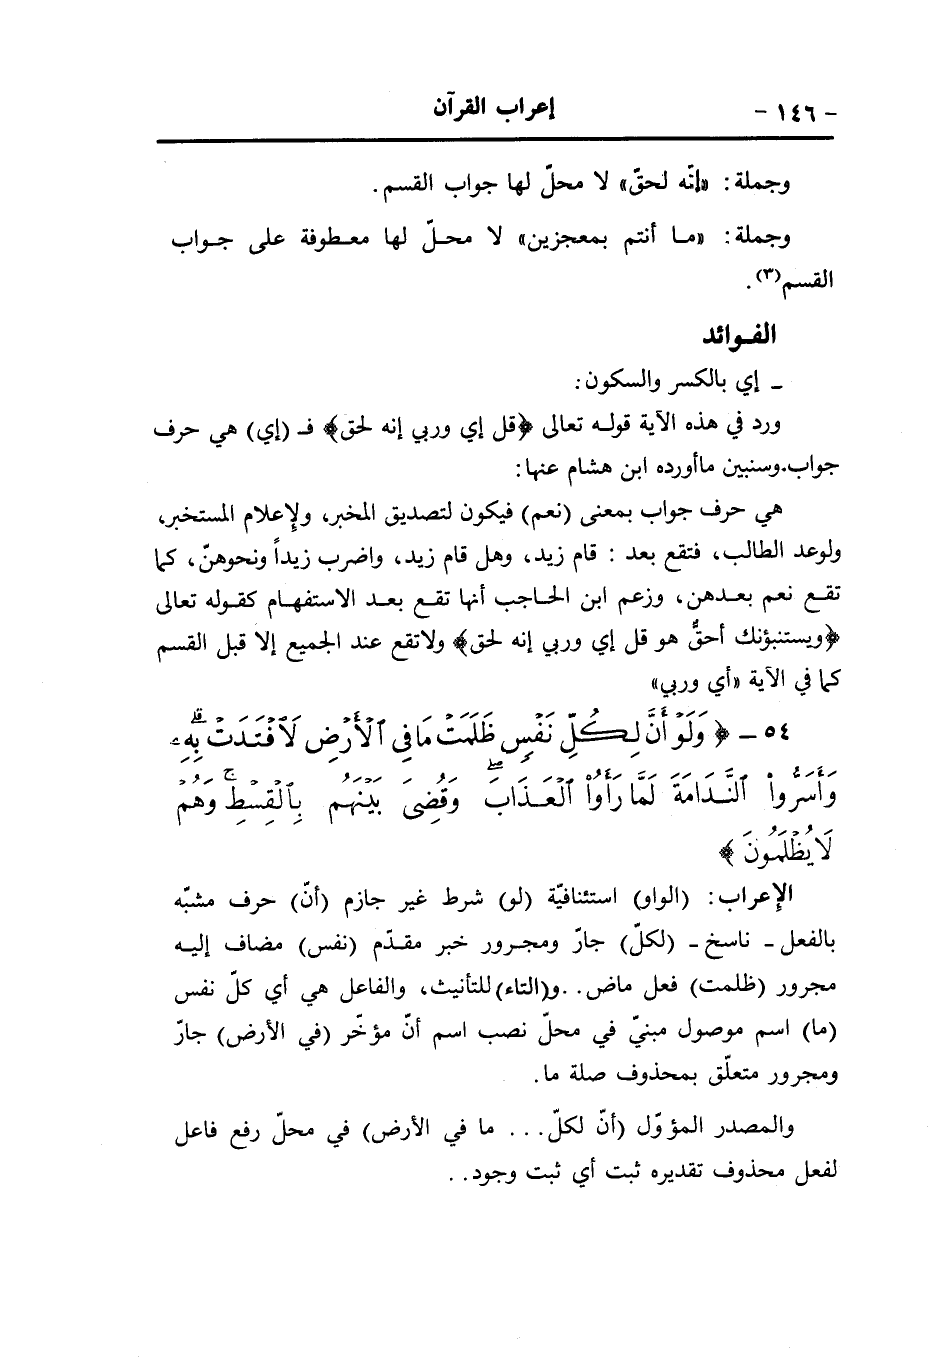 - ١٤٦ - إعراب القرآن
وجملة: «إنّه لحقّ» لا محلّ لها جواب القسم.
وجملة: «ما أنتم بمعجزين» لا محلّ لها معطوفة على جواب
القسم(٣).
الفوائد
ـ إي بالكسر والسكون:
ورد في هذه الآية قوله تعالى ﴿قل إي وربي إنه لحق﴾ فـ (إي) هي حرف
جواب.وسنبين ماأورده ابن هشام عنها:
هي حرف جواب بمعنى (نعم) فيكون لتصديق المخبر، ولإعلام المستخبر،
ولوعد الطالب، فتقع بعد : قام زيد، وهل قام زيد، واضرب زيداً ونحوهنّ، كما
تقع نعم بعدهن، وزعم ابن الحاجب أنها تقع بعد الاستفهام كقوله تعالى
﴿ويستنبؤنك أحقُّ هو قل إي وربي إنه لحق﴾ ولاتقع عند الجميع إلا قبل القسم
كما في الآية «أي وربي»
٥٤ - ﴿ وَلَوْ أَنَّ لِكُلِّ نَفْسٍ ظَلَمَتْ مَا فِي ٱلْأَرْضِ لَٱفْتَدَتْ بِهِۦ
وَأَسَرُّواْ ٱلنَّدَامَةَ لَمَّا رَأَوُاْ ٱلْعَذَابَ وَقُضِىَ بَيْنَهُم بِٱلْقِسْطِ وَهُمْ
لَا يُظْلَمُونَ ﴾
الإعراب: (الواو) استئنافيّة (لو) شرط غير جازم (أنّ) حرف مشبّه
بالفعل ـ ناسخ ـ (لكلّ) جارّ ومجرور خبر مقدّم (نفس) مضاف إليه
مجرور (ظلمت) فعل ماض.. و(التاء) للتأنيث، والفاعل هي أي كلّ نفس
(ما) اسم موصول مبنيّ في محلّ نصب اسم أنّ مؤخّر (في الأرض) جارّ
ومجرور متعلّق بمحذوف صلة ما.
والمصدر المؤوّل (أنّ لكلّ... ما في الأرض) في محلّ رفع فاعل
لفعل محذوف تقديره ثبت أي ثبت وجود..